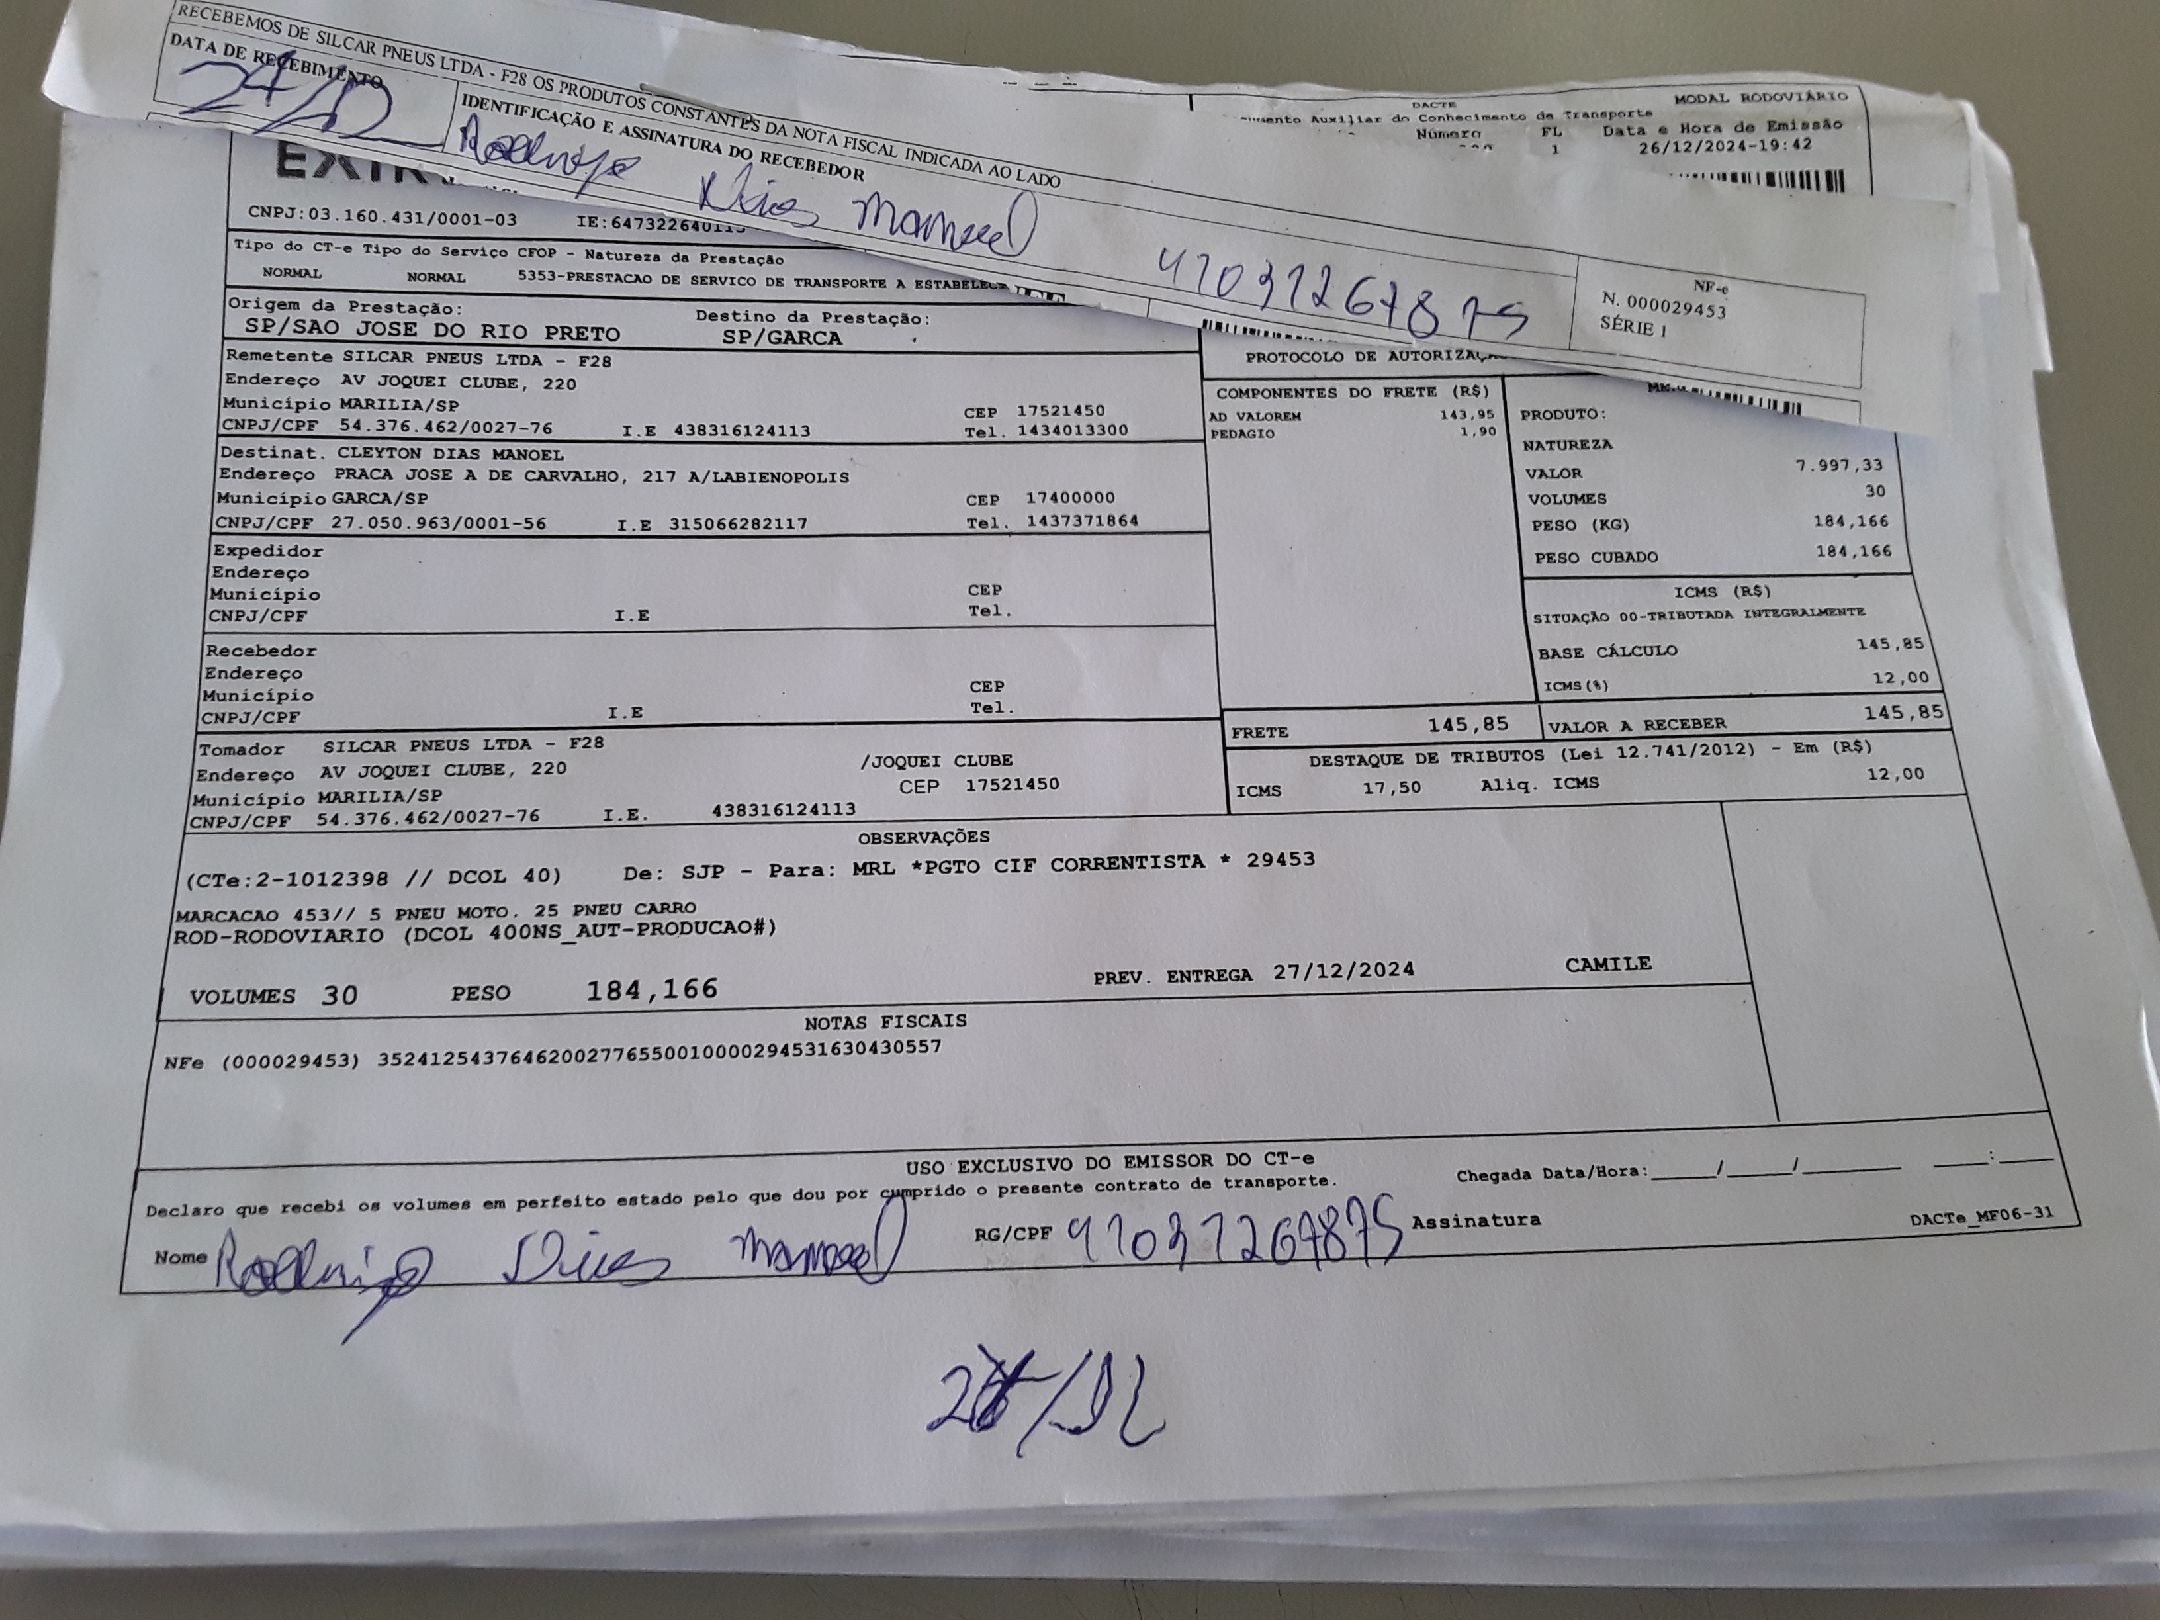 RECEBEMOS DE SILCAR PNEUS LTDA - F28 OS PRODUTOS CONSTANTES DA NOTA FISCAL INDICADA AO LADO
DATA DE RECEBIMENTO
IDENTIFICAÇÃO E ASSINATURA DO RECEBEDOR
Rodrigo Dias Manoel 41037267875
NF-e
N. 000029453
SÉRIE 1
DACTE
MODAL RODOVIÁRIO
Auxiliar do Conhecimento de Transporte
Número FL Data e Hora de Emissão
1 26/12/2024-19:42
CNPJ:03.160.431/0001-03 IE:647322640115
Tipo do CT-e Tipo do Serviço CFOP - Natureza da Prestação
NORMAL NORMAL 5353-PRESTACAO DE SERVICO DE TRANSPORTE A
Origem da Prestação: Destino da Prestação:
SP/SAO JOSE DO RIO PRETO SP/GARCA
PROTOCOLO DE
Remetente SILCAR PNEUS LTDA - F28
Endereço AV JOQUEI CLUBE, 220
Município MARILIA/SP CEP 17521450
CNPJ/CPF 54.376.462/0027-76 I.E 438316124113 Tel. 1434013300
Destinat. CLEYTON DIAS MANOEL
Endereço PRACA JOSE A DE CARVALHO, 217 A/LABIENOPOLIS
Município GARCA/SP CEP 17400000
CNPJ/CPF 27.050.963/0001-56 I.E 315066282117 Tel. 1437371864
Expedidor
Endereço
Município CEP
CNPJ/CPF I.E Tel.
Recebedor
Endereço
Município CEP
CNPJ/CPF I.E Tel.
Tomador SILCAR PNEUS LTDA - F28
Endereço AV JOQUEI CLUBE, 220 /JOQUEI CLUBE
Município MARILIA/SP CEP 17521450
CNPJ/CPF 54.376.462/0027-76 I.E. 438316124113
COMPONENTES DO FRETE (R$)
AD VALOREM 143,95
PEDAGIO 1,90
PRODUTO:
NATUREZA
VALOR 7.997,33
VOLUMES 30
PESO (KG) 184,166
PESO CUBADO 184,166
ICMS (R$)
SITUAÇÃO 00-TRIBUTADA INTEGRALMENTE
BASE CÁLCULO 145,85
ICMS(%) 12,00
FRETE 145,85 VALOR A RECEBER 145,85
DESTAQUE DE TRIBUTOS (Lei 12.741/2012) - Em (R$)
ICMS 17,50 Aliq. ICMS 12,00
OBSERVAÇÕES
(CTe:2-1012398 // DCOL 40) De: SJP - Para: MRL *PGTO CIF CORRENTISTA * 29453
MARCACAO 453// 5 PNEU MOTO. 25 PNEU CARRO
ROD-RODOVIARIO (DCOL 400NS_AUT-PRODUCAO#)
VOLUMES 30 PESO 184,166 PREV. ENTREGA 27/12/2024 CAMILE
NOTAS FISCAIS
NFe (000029453) 35241254376462002776550010000294531630430557
USO EXCLUSIVO DO EMISSOR DO CT-e
Declaro que recebi os volumes em perfeito estado pelo que dou por cumprido o presente contrato de transporte.
Chegada Data/Hora:_____/_____/________ ____:____
Nome Rodrigo Dias Manoel RG/CPF 41037267875 Assinatura
DACTe_MF06-31